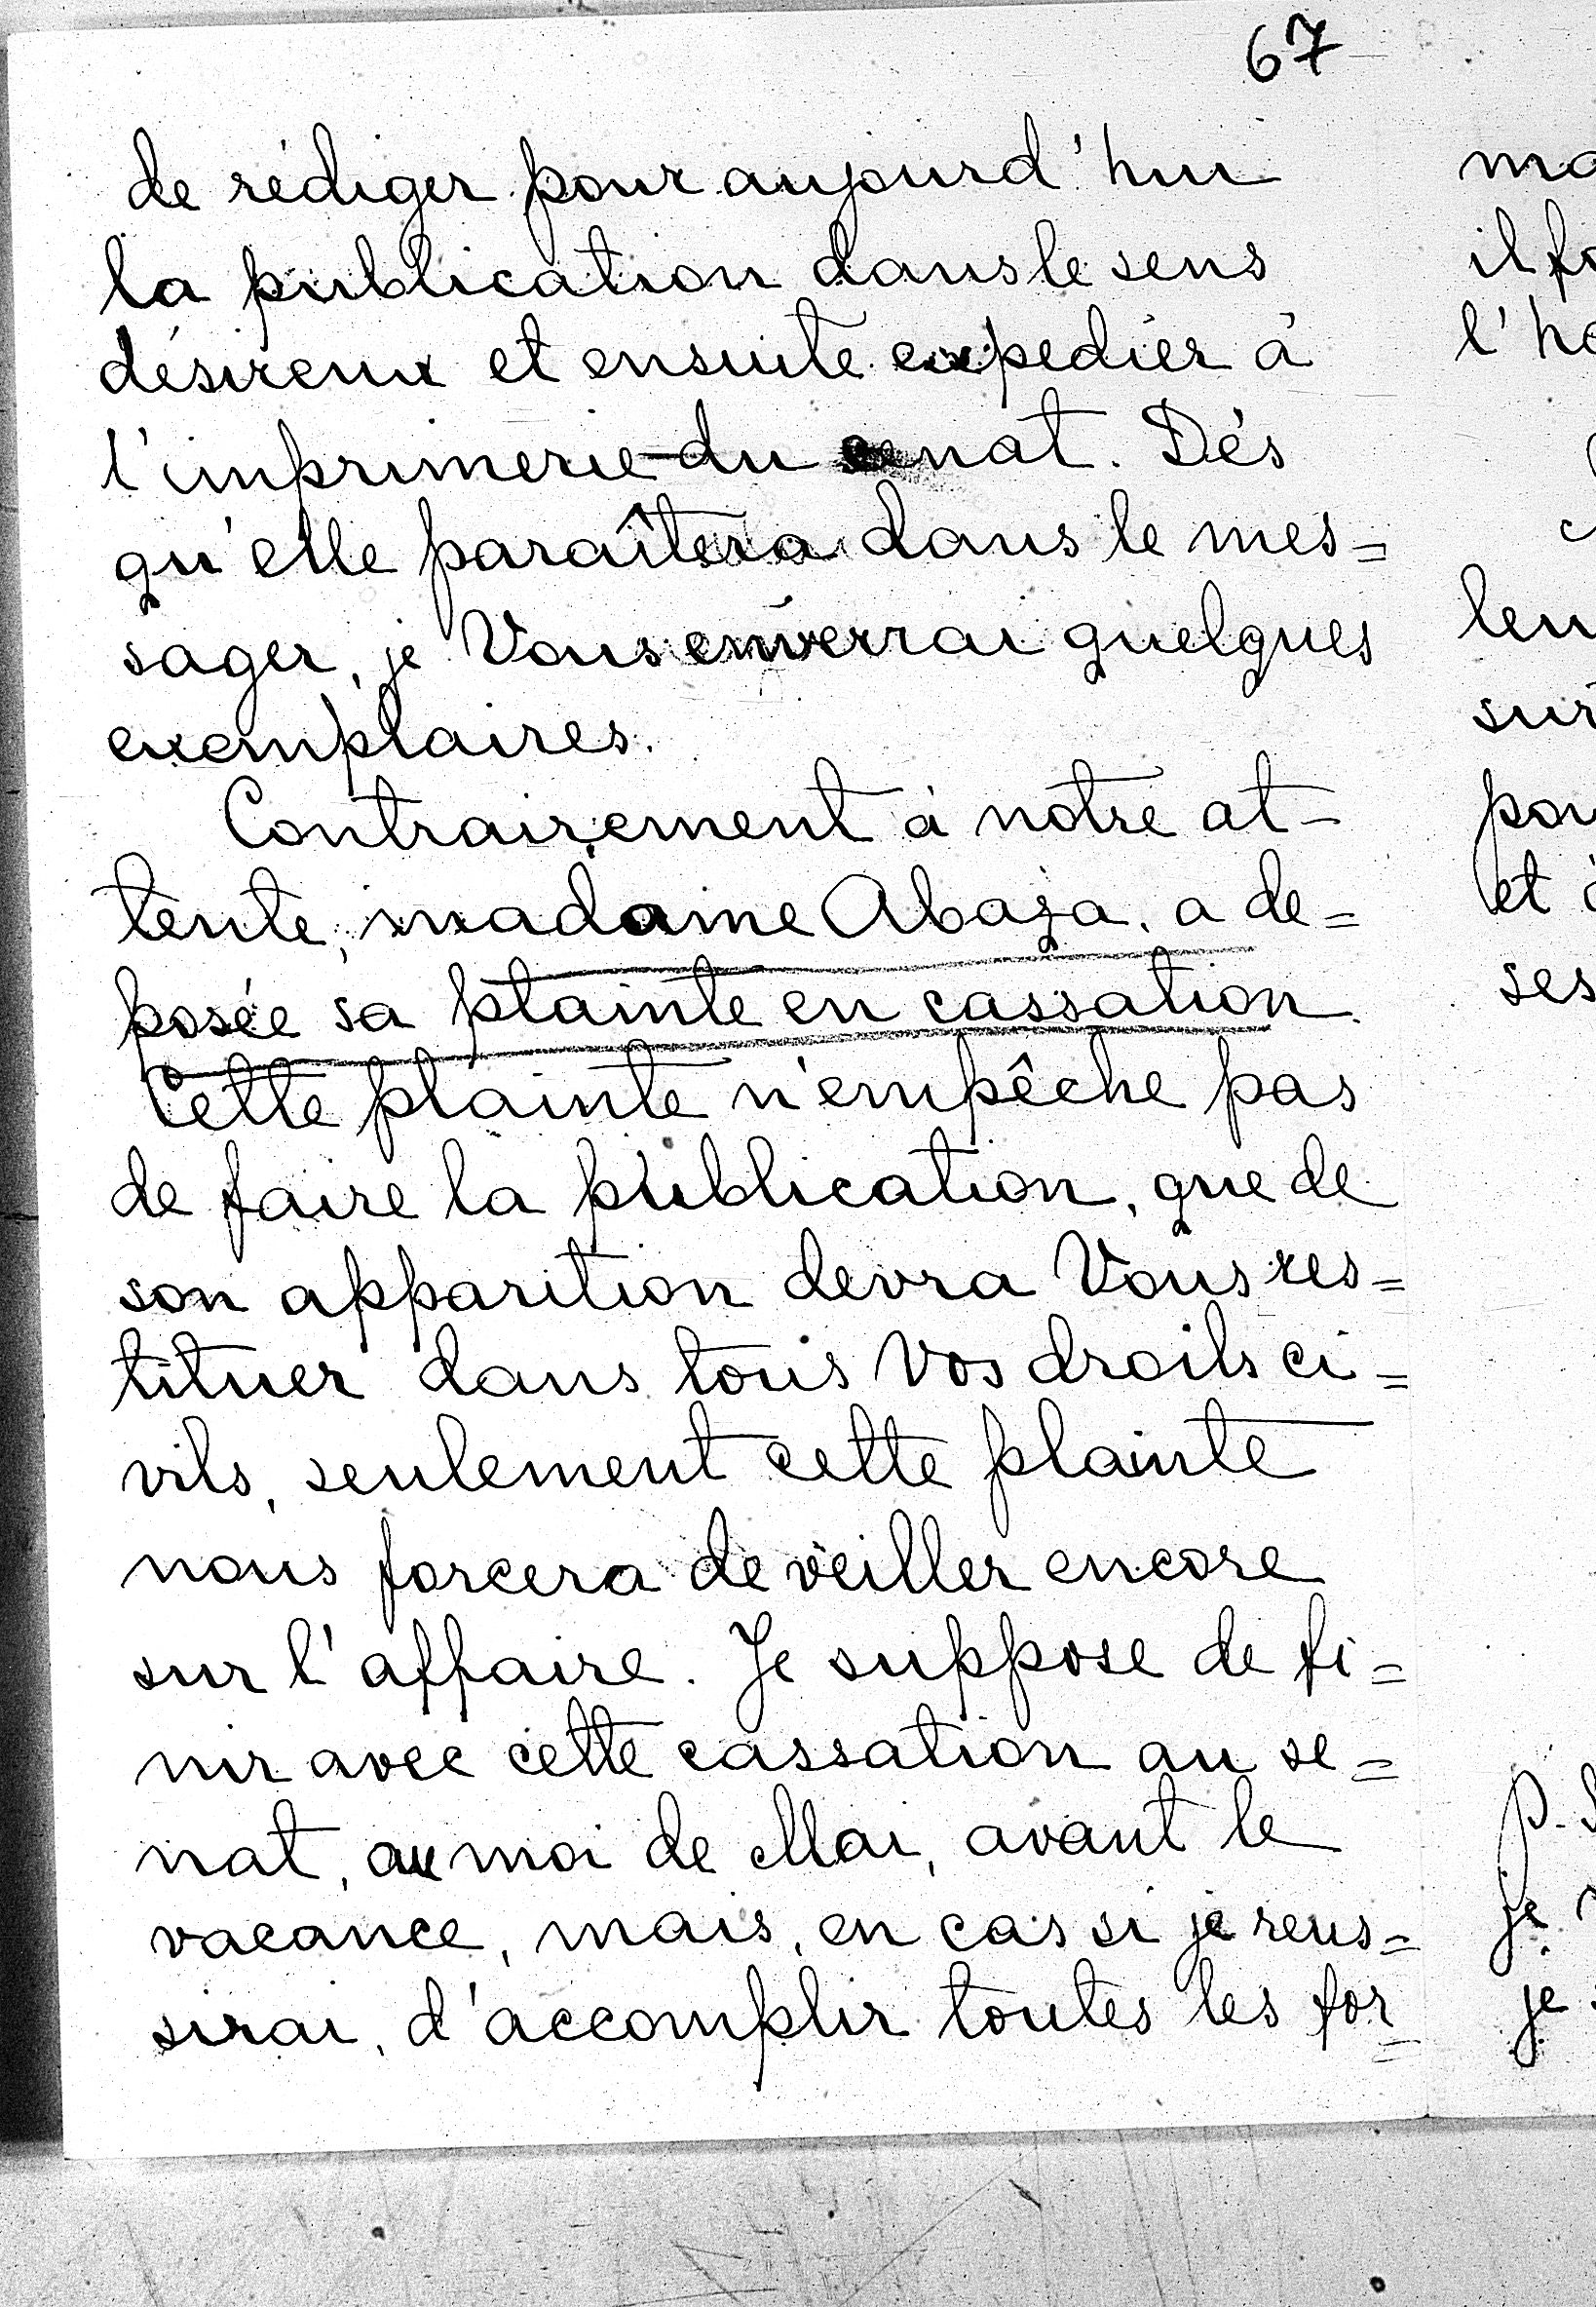 67
de rédiger pour aujourd'hui
la publication dans le sens
désireux et ensuite expedier à
l'imprimerie du senat. Dés
qu'elle paraîtera dans le mes=
sager, je Vous enverrai quelques
exemplaires.
Contrairement à notre at-
tente, madame Abaza, a de=
posée sa plainte en cassation.
Cette plainte n'empêche pas
de faire la publication, que de
son apparition devra Vous res=
tituer dans tous Vos droits ci=
vils, seulement cette plainte
nous forcera de veiller encore
sur l'affaire. Je suppose de fi=
nir avec cette cassation au se=
nat, au moi de Mai, avant le
vacance, mais, en cas si je reus=
sirai, d'accomplir toutes les for=
ma
il fo
l'ho
leu
sur
pou
et
ses
P.S
je
je